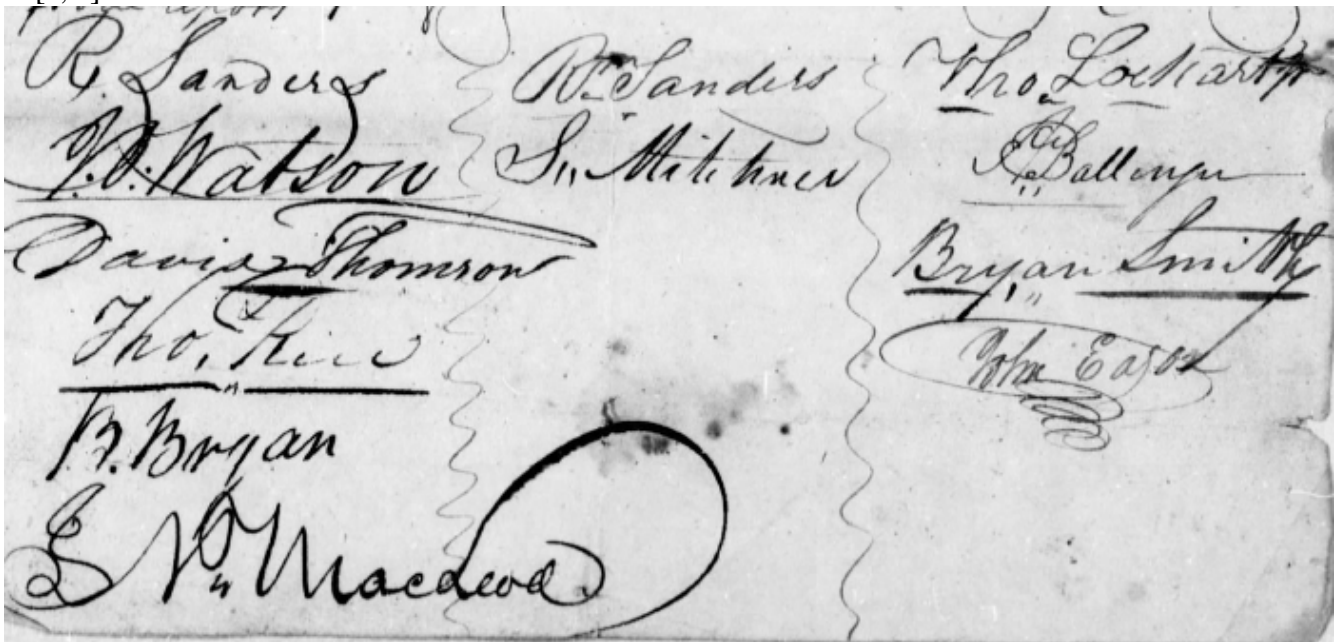 R. Sanders
J. O. Watson
David Thomson
Tho. Rice
B. Bryan
N. Macleod
Rn. Sanders
Sn. Mitchner
Tho. Lockart
Ballenger
Bryan Smith
John Eason